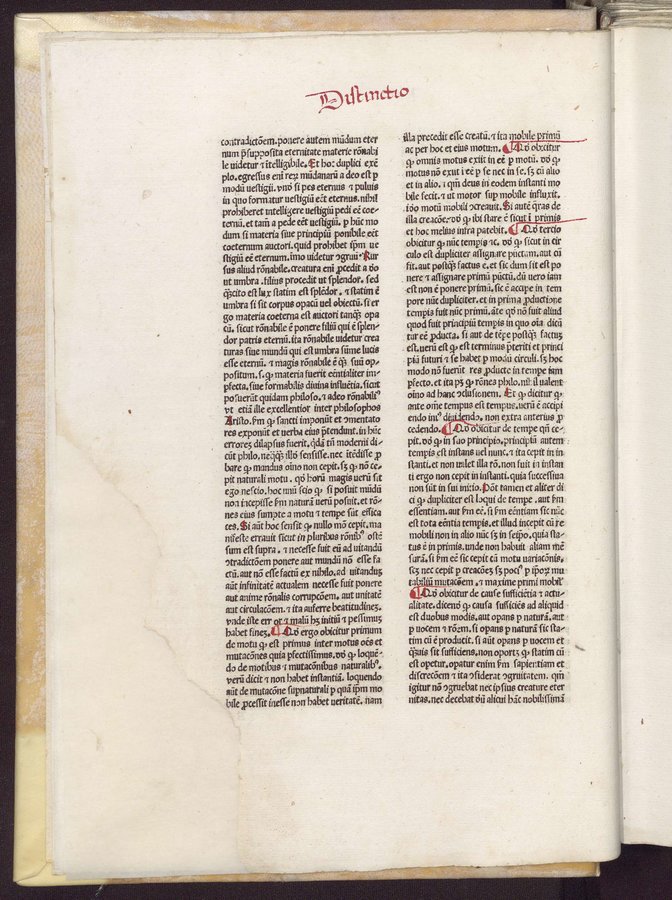 Distinctio
cōtradictōem. ponere autem mūdum eter
num p̄supposita eternitate materie rōnabi
le videtur ⁊ ītelligibile. Et hoc duplici exē
plo. egressus eni rerū mūdanarū a deo est p
modū vestigii. vnō si pes eternus ⁊ puluis
in quo formatur vestigiū eēt eternus. nihil
prohiberet intelligere vestigiū pedi eē coe-
ternū. et tamē a pede eēt vestigiū. p hūc mo
dum si materia siue principiū ponibile eēt
coeternum auctori. quid prohibet ip̄m ve
stigiū eē eternum. imo videtur ꝯgruū. Rur
sus aliud rōnabile. creatura eni ꝓcedit a deo
ut umbra. filius procedit ut splendor. sed
qͣcito est lux statim est splēdor. ⁊ statim ē
umbra si sit corpus opacū vel obiectū. si er
go materia coeterna est auctori tanqͣ opa
cū. sicut rōnabile ē ponere filiū qui ē splen-
dor patris eternū. ita rōnabile videtur crea
turas siue mundū qui est umbra sūme lucis
esse eternū. ⁊ magis rōnabile ē qͣ suū op-
positum. s. ꝙ materia fuerit eēntialiter im-
pfecta. siue formabilis diuina influētia. sicut
posuerūt quidam philoso. ⁊ adeo rōnabiliꝰ
vt etiā ille excellentior inter philosophos
Aristo. fm ꝙ sancti imponūt et ꝯmentato
res exponūt et verba eius p̄tendunt. in hūc
errorez dilapsus fuerit. qdā tn̄ moderni di-
cūt philo. neqͣqͣ illō sensisse. nec itēdisse ꝓ
bare ꝙ mundus oīno non cepit. sꝫ ꝙ nō ce-
pit naturali motu. qd horū magis verū sit
ego nescio. hoc unū scio ꝙ si posuit mūdū
non incepisse fm naturā verū posuit. et rō-
nes eius sumpte a motu ⁊ tempe sūt effica
ces. Si aūt hoc sensit ꝙ nullo mō cepit. ma
nifeste errauit sicut in pluribus rōnibꝰ ostē
sum est supra. ⁊ necesse fuit eū ad vitandū
ꝯtradictōem ponere aut mundū nō esse fa
ctū. aut nō esse factū ex nihilo. ad vitanduꝫ
aūt infinitatē actualem necesse fuit ponere
aut anime rōnalis corrupcōem. aut vnitatē
aut circulacōem. ⁊ ita auferre beatitudineꝫ.
vnde iste error ⁊ malū hꝫ initiū ⁊ pessimuꝫ
habet finez. ¶ Qd ergo obicitur primum
de motu ꝙ est primus inter motus oēs et
mutacōnes quia pfectissimus. vō ꝙ loquē-
do de motibus ⁊ mutacōnibus naturalibꝰ.
verū dicit ⁊ non habet instantiā. loquendo
aūt de mutacōne supnaturali p quā ip̄m mo
bile ꝓcessit inesse non habet veritatē. nam
illa precedit esse creatū. ⁊ ita mobile primū
ac per hoc et eius motum. ¶ Qd obicitur
ꝙ omnis motus exiit in eē p motū. vō ꝙ
motus nō exiit ī eē p se nec in se. sꝫ cū alio
et in alio. ⁊ qm̄ deus in eodem instanti mo
bile fecit. ⁊ ut motor sup mobile influxit.
iōo motū mobili ꝯcreauit. Si autē qͣras de
illa creacōe. vō ꝙ ibi stare ē sicut ī primis
et hoc melius infra patebit. ¶ Qd tercio
obicitur ꝙ nūc tempis ꝛc. vō ꝙ sicut in cir
culo est dupliciter assignare pūctum. aut cū
fit. aut postqͣ factus ē. et sic dum fit est po
nere ⁊ assignare primū pūctū. dū vero iam
est non ē ponere primū. sic ē accipe in tem
pore nūc dupliciter. et in prima ꝓductione
tempis fuit nūc primū. āte qd nō fuit aliud
quod fuit principiū tempis in quo oīa dicū
tur eē ꝓducta. si aut de tēꝑe postqͣ factuꝫ
est. verū est ꝙ est terminus p̄teriti et princi
piū futuri ⁊ se habet p modū circuli. sꝫ hoc
modo nō fuerūt res ꝓducte in tempe iam
pfecto. et ita pꝫ ꝙ rōnes philo. nihil valent
oīno ad hanc ꝯclusionem. Et ꝙ dicitur ꝙ
ante om̄e tempus est tempus. verū ē accipi
endo intꝰ diuidendo. non extra anterius ꝓ
cedendo. ¶ Qd obicitur de tempe qn̄ ce-
pit. vō ꝙ in suo principio. principiū autem
tempis est instans vel nunc. ⁊ ita cepit in in
stanti. et non valet illa rō. non fuit in instan
ti ergo non cepit in instanti. quia successiua
non sūt in sui initio. Pōt tamen et aliter di
ci ꝙ dupliciter est loqui de tempe. aut fm
essentiam. aut fm eē. si fm eēntiam sic nūc
est tota eēntia tempis. et illud incepit cū re
mobili non in alio nūc sꝫ in seipō. quia sta-
tus ē in primis. vnde non habuit aliam mē
surā. si fm eē sic cepit cū motu variacōnis.
scꝫ nec cepit p creacōeꝫ sꝫ pociꝰ p ipōꝝ mu
tabiliū mutacōem. ⁊ maxime primi mobil̓
¶ Qd obicitur de cause sufficiētia ⁊ actu-
alitate. dicend ꝙ causa sufficiēs ad aliquid
est duobus modis. aut opans p naturā. aut
p vocem ⁊ rōem. si opans p naturā sic sta-
tim cū ē producit. si aūt opans p vocem et
qͣuis sit sufficiens. non oportꝫ ꝙ statim cū
est opetur. opatur enim fm sapientiam et
discrecōem ⁊ ita ꝯsiderat ꝯgruitatem. qm̄
igitur nō ꝯgruebat nec ipsius creature eter
nitas. nec decebat dū alicui hāc nobilissimā